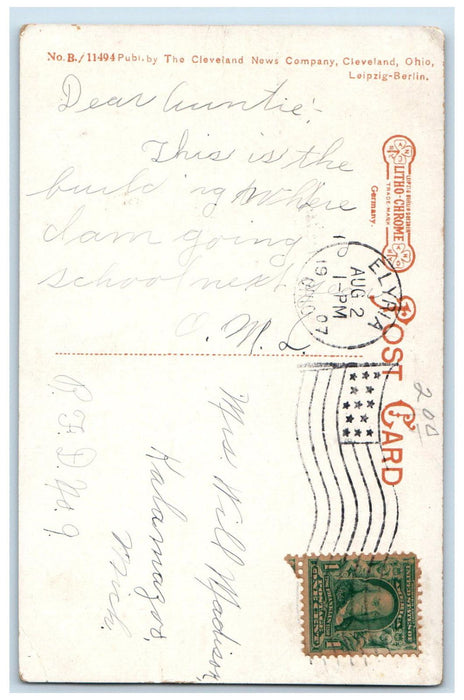 No. B./11494 Publ. by The Cleveland News Company, Cleveland, Ohio,
Leipzig-Berlin.
Dear Auntie:-
This is the
building where
I am going
school next
O. M. L.
LEIPZIG BERLIN DRESDEN
LITHO-CHROME
TRADE MARK
Germany.
POST CARD
ELYRIA
AUG 2
1-PM
1907
OHIO
200
Mrs Will Madison
Kalamazoo,
Mich.
R. F. D. No. 9.